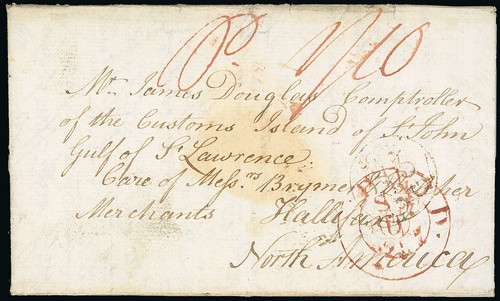 Pd 1/10
Mr. James Douglas Comptroller
of the Customs Island of St. John
Gulf of St. Lawrence.
Care of Messrs Brymer
Merchants Hallifax
North America